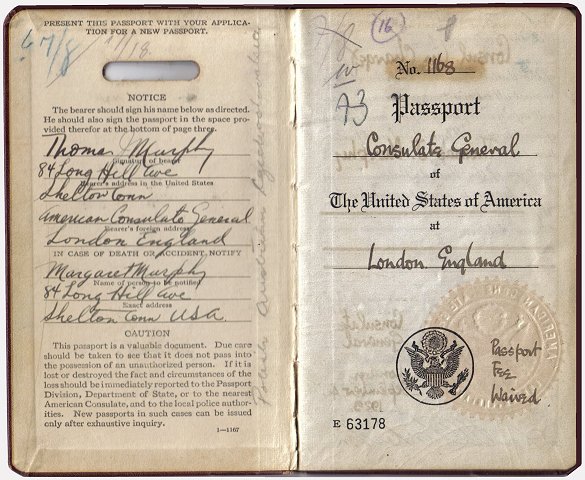 PRESENT THIS PASSPORT WITH YOUR APPLICA-
TION FOR A NEW PASSPORT.
NOTICE
The bearer should sign his name below as directed.
He should also sign the passport in the space pro-
vided therefor at the bottom of page three.
Thomas J Murphy
Signature of bearer
84 Long Hill Ave
Bearer's address in the United States
Shelton Conn
American Consulate General
Bearer's foreign address
London England
IN CASE OF DEATH OR ACCIDENT, NOTIFY
Margaret Murphy
Name of person to be notified
84 Long Hill Ave
Exact address
Shelton Conn USA.
CAUTION
This passport is a valuable document. Due care
should be taken to see that it does not pass into
the possession of an unauthorized person. If it is
lost or destroyed the fact and circumstances of the
loss should be immediately reported to the Passport
Division, Department of State, or to the nearest
American Consulate, and to the local police author-
ities. New passports in such cases can be issued
only after exhaustive inquiry.
1—1167
16
No. 1168
Passport
Consulate General
of
The United States of America
at
London. England
Passport
Fee
Waived
E 63178